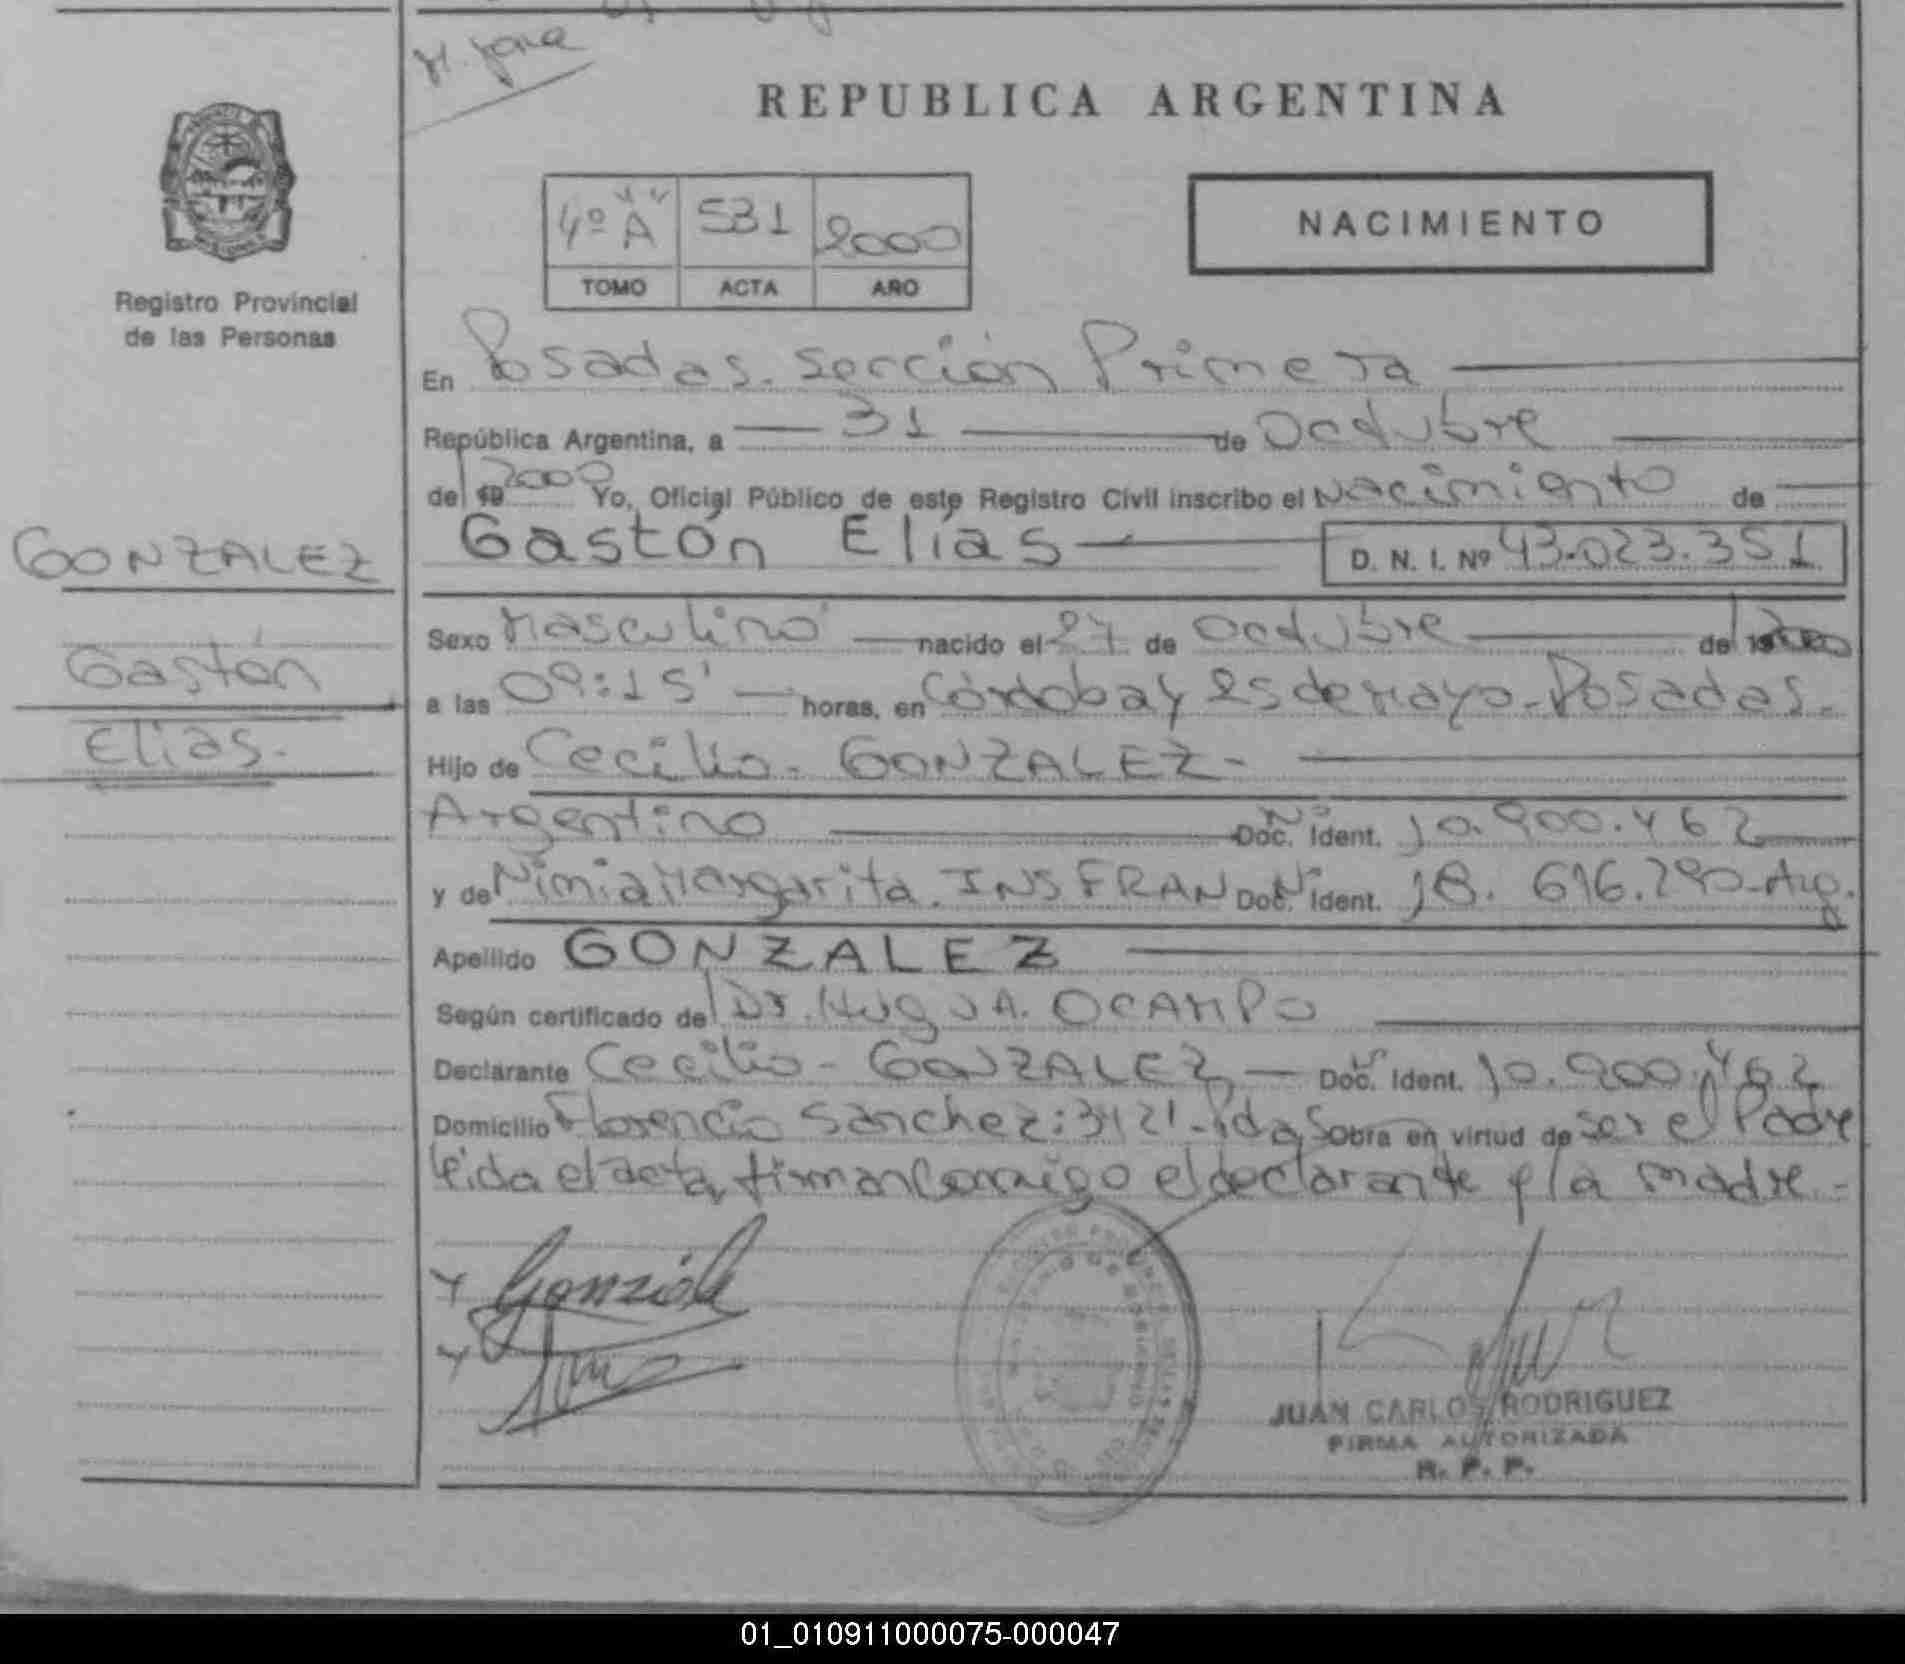 H. Jana
REPUBLICA ARGENTINA
4º "A" 531 2000
TOMO ACTA AÑO
NACIMIENTO
Registro Provincial
de las Personas
En Posadas. Sección Primera
República Argentina, a 31 de Octubre
de 2000 Yo, Oficial Público de este Registro Civil inscribo el Nacimiento de
Gastón Elías D. N. I. Nº 43.023.351
GONZALEZ
Gastón
Elías.
Sexo Masculino nacido el 27 de Octubre de 2000
a las 09:15' horas, en Córdoba y 25 de Mayo-Posadas.
Hijo de Cecilio. GONZALEZ-
Argentino Doc. Nº Ident. 10.900.462
y de Nimia Margarita. INSFRAN Doc. Nº Ident. 18.616.290-Arg.
Apellido GONZALEZ
Según certificado de Dr. Hugo A. OCAMPO
Declarante Cecilio- GONZALEZ Doc. Nº Ident. 10.900.462
Domicilio Florencio Sánchez:3421-Pdas Obra en virtud de ser el Padre
leída el acta, firman Conmigo el declarante y la madre.-
JUAN CARLOS RODRIGUEZ
FIRMA AUTORIZADA
R. P. P.
01_010911000075-000047